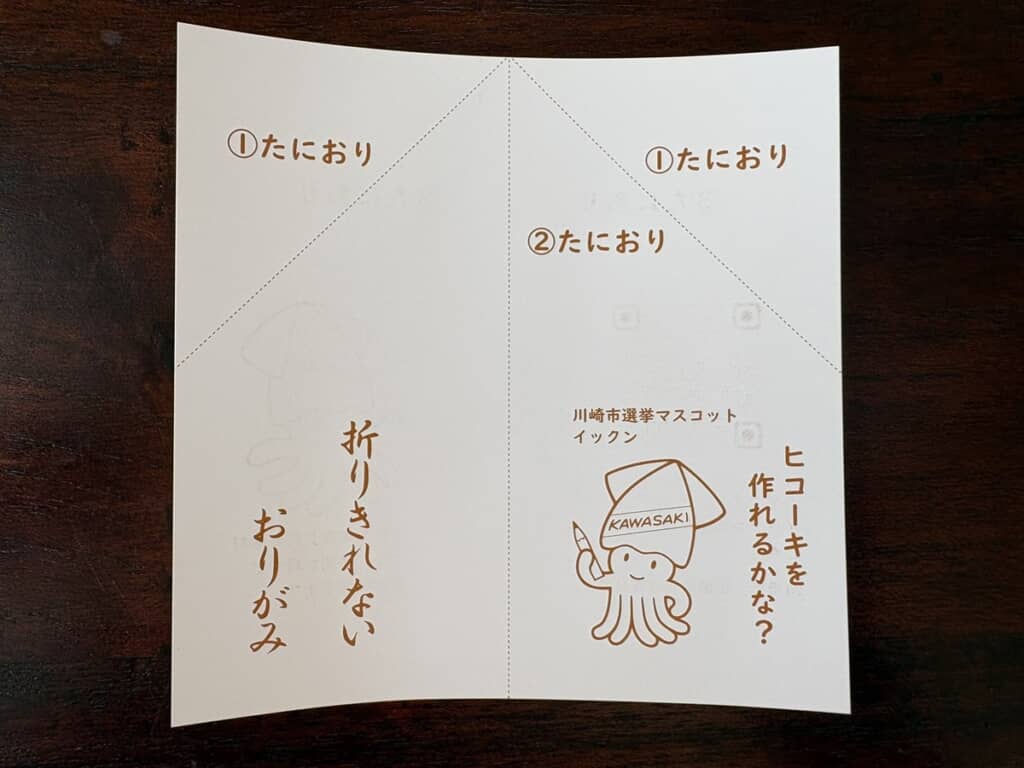 ①たにおり
①たにおり
②たにおり
川崎市選挙マスコット
イックン
KAWASAKI
ヒコーキを
作れるかな？
折りきれない
おりがみ